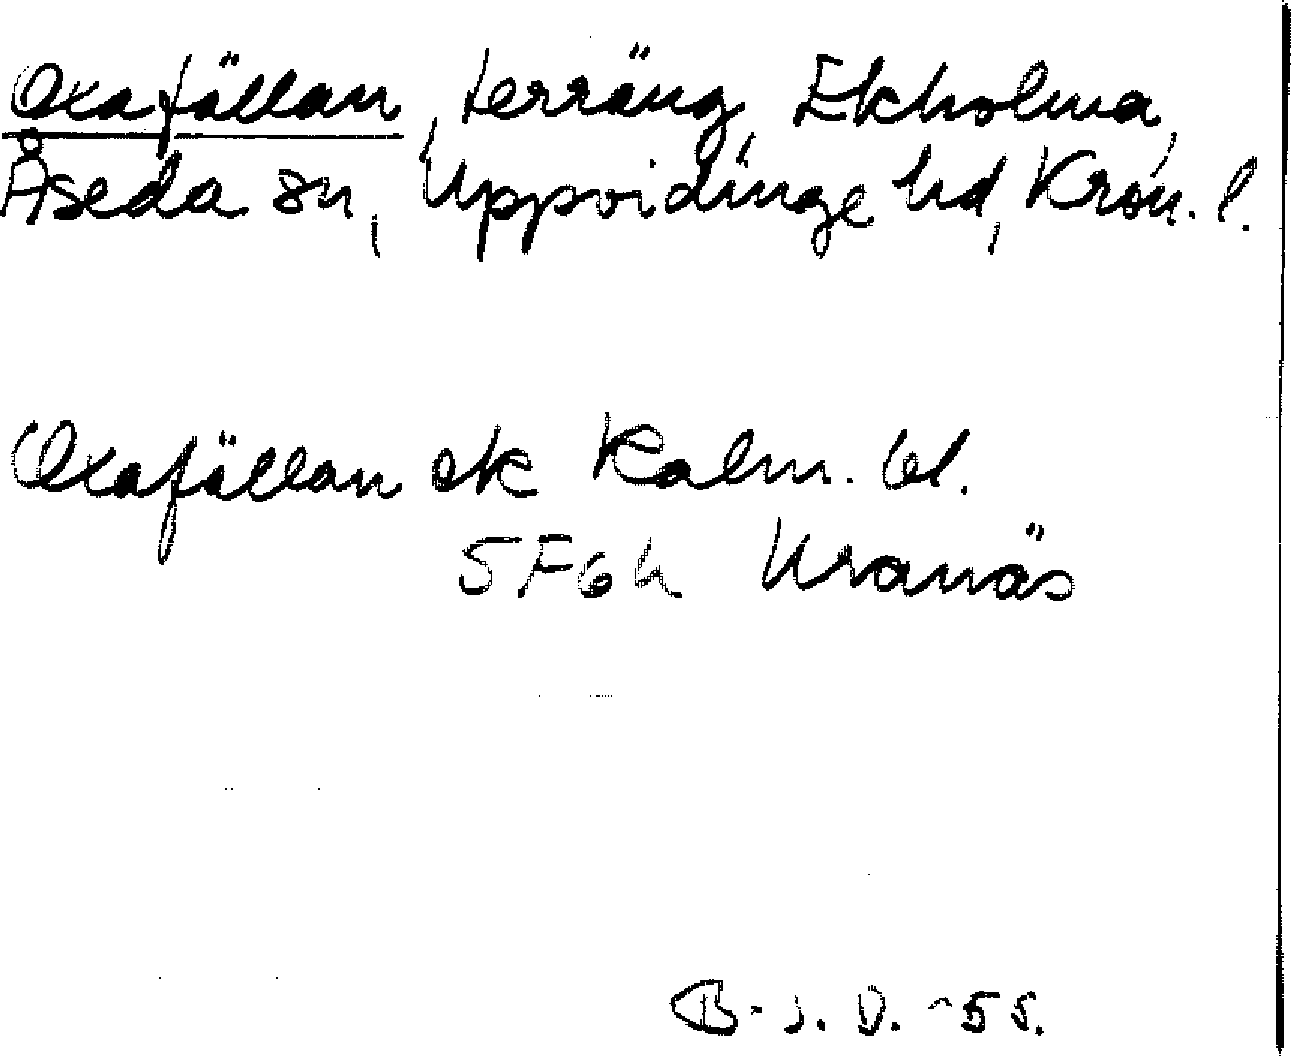 Oxafällan, terräng, Ekholma,
Åseda sn, Uppvidinge hd, Kron. l.
Oxafällan ek Kalm. bl.
5F6h Kranäs
B-J. D. -55.